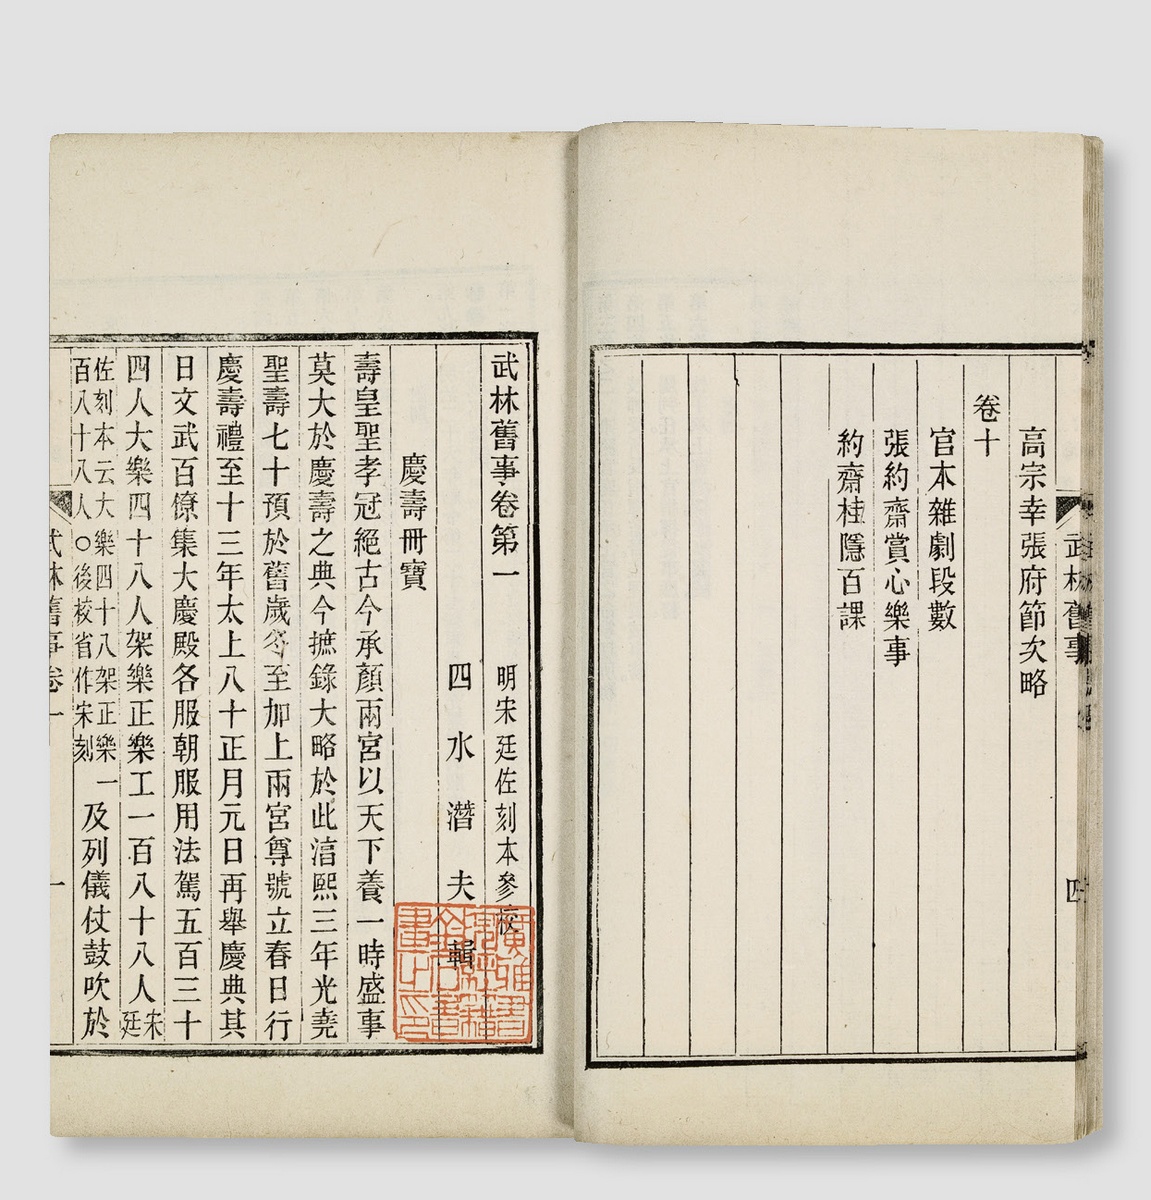 高宗幸張府節次略
卷十
官本雜劇段數
張約齋賞心樂事
約齋桂隱百課
武林舊事
四
武林舊事卷第一
明宋廷佐刻本參校
四水潛夫輯
慶壽冊寶
壽皇聖孝冠絕古今承顏兩宮以天下養一時盛事
莫大於慶壽之典今摭錄大略於此湻熙三年光堯
聖壽七十預於舊歲冬至加上兩宮尊號立春日行
慶壽禮至十三年太上八十正月元日再舉慶典其
日文武百僚集大慶殿各服朝服用法駕五百三十
四人大樂四十八人架樂正樂工一百八十八人宋廷
佐刻本云大樂四十八架正樂一百八十八人○後校省作宋刻及列儀仗鼓吹於
武林舊事卷一
一